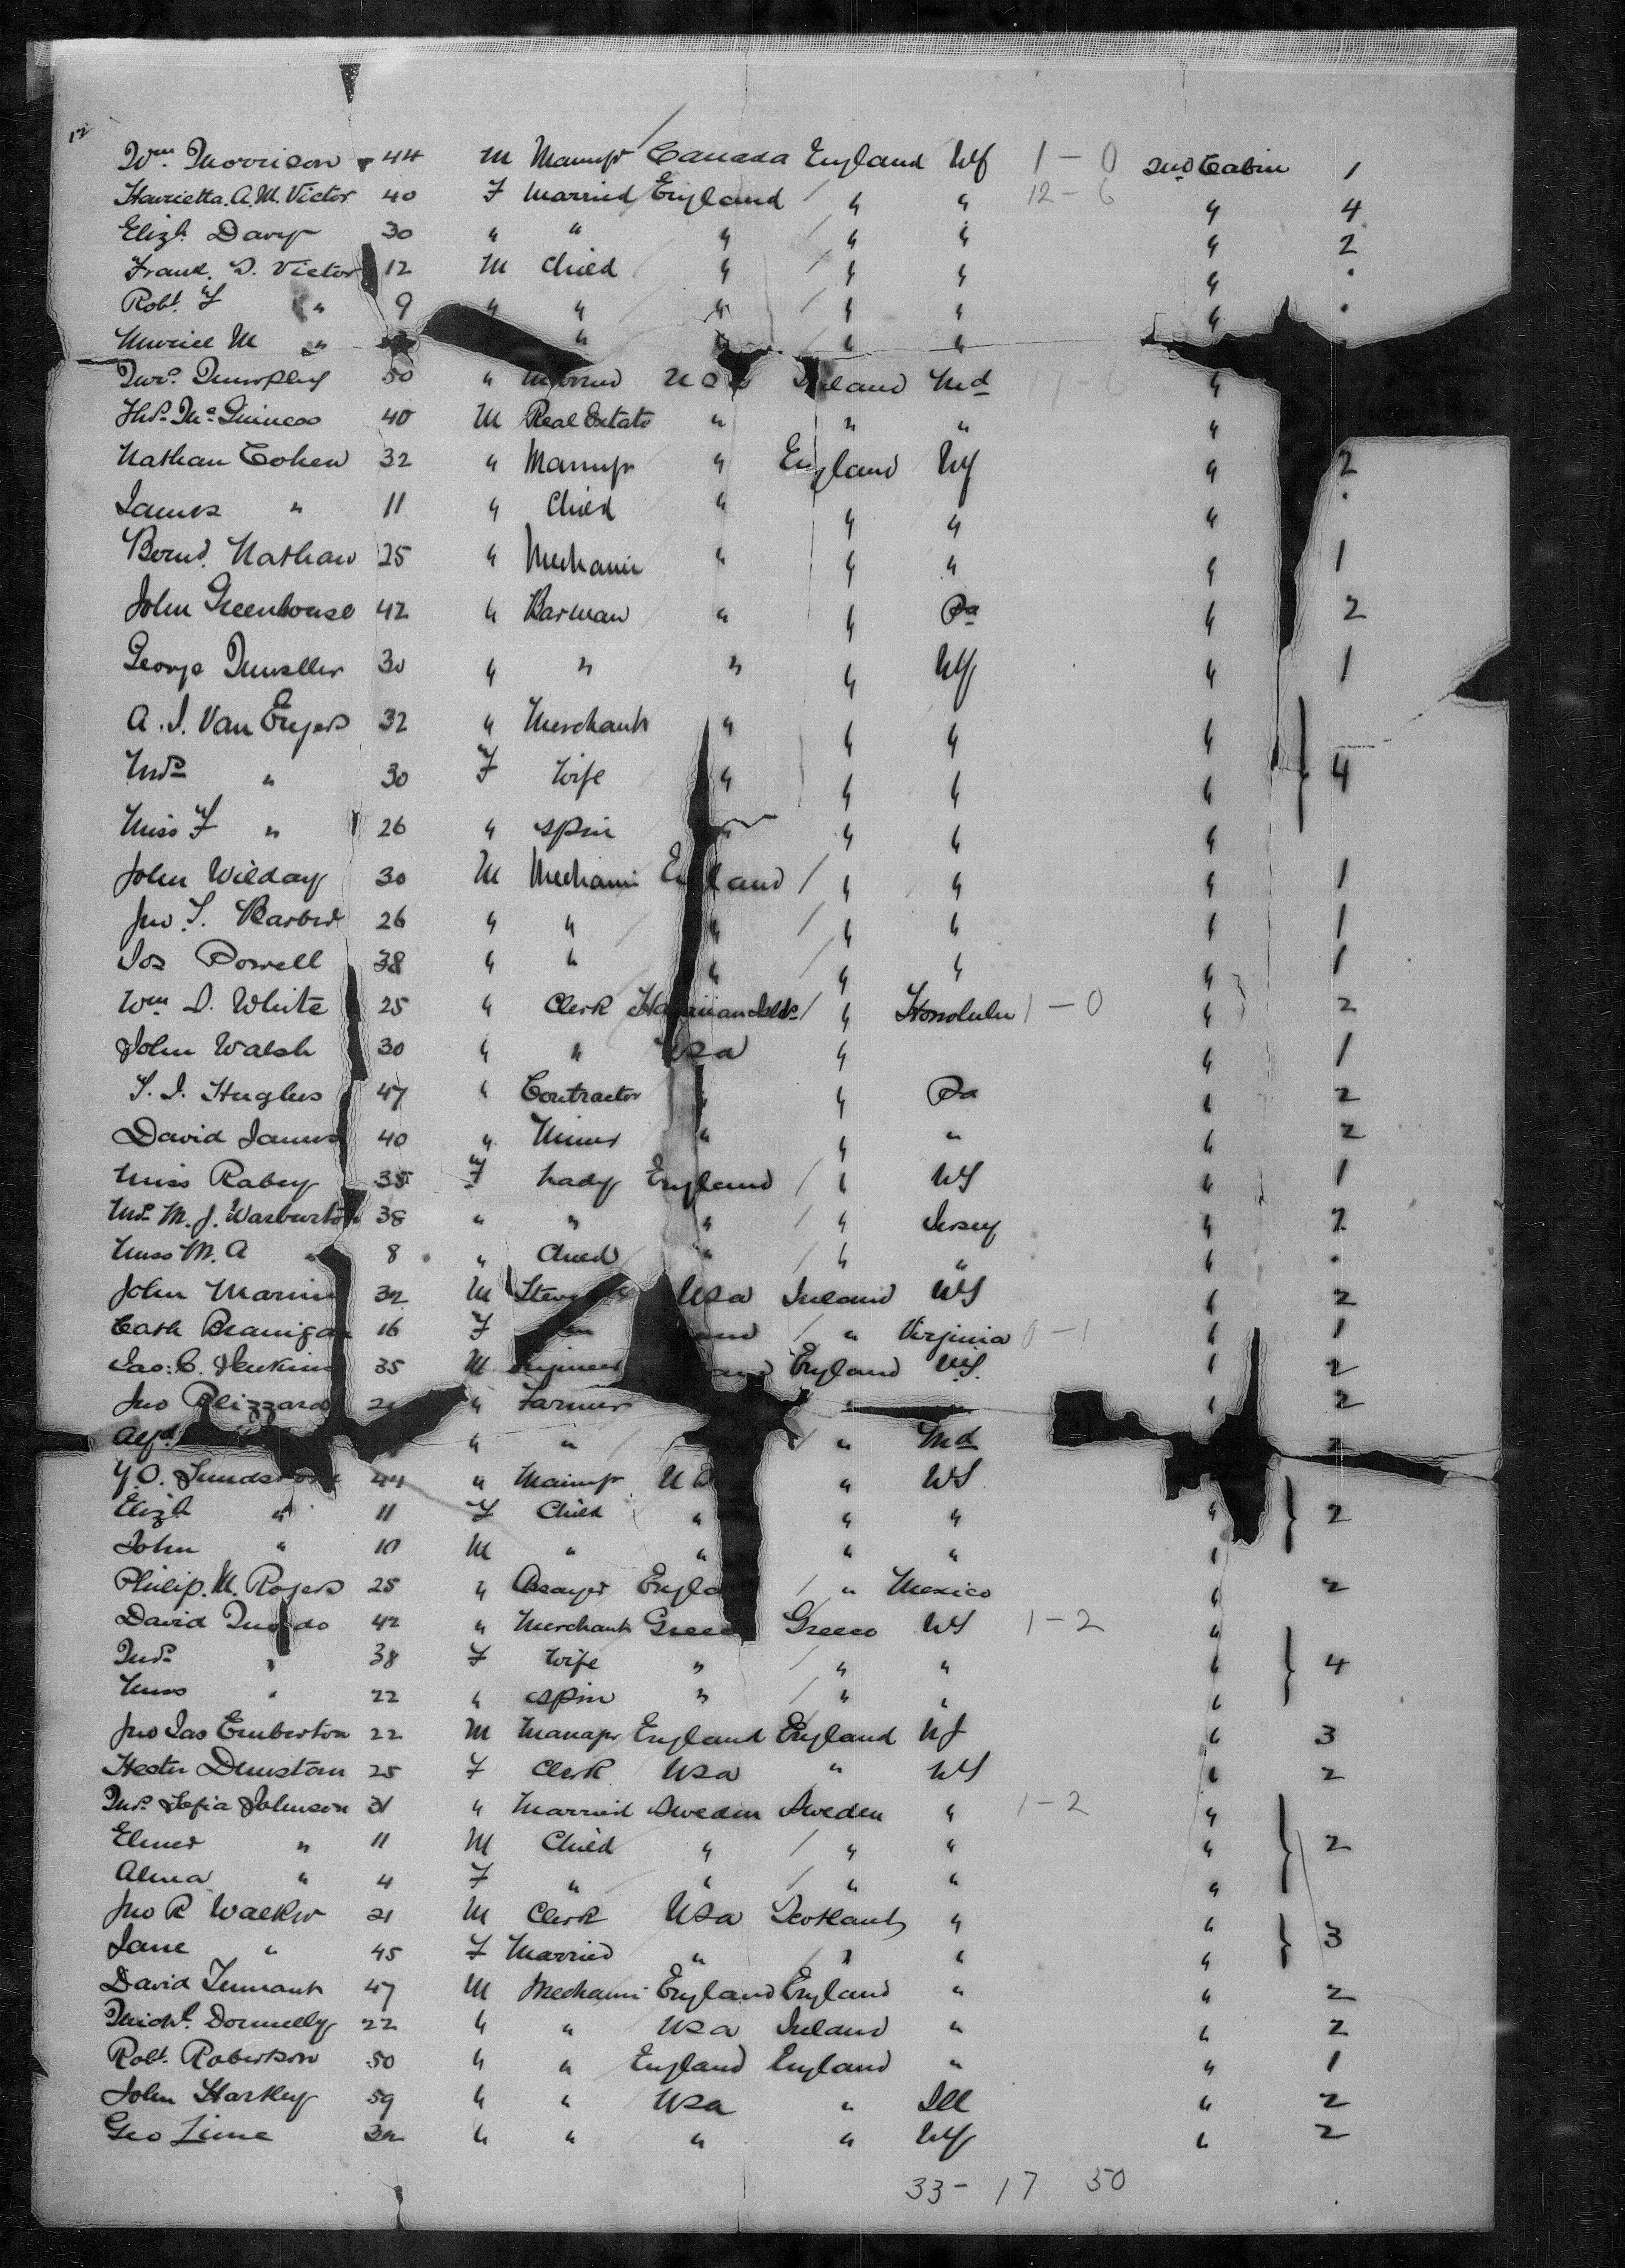 12
Wm Morrison 44 M Manufr Canada England NY 1-0 2nd Cabin 1
Henrietta. A. M. Victor 40 F Married England " " 12-6 " 4
Elizh Davy 30 " " " " " " 2
D. Victor 12 M Child " " " " .
Robt F " 9 " " " " " " .
Muriel M " " " " " "
50 " Married USA Ireland Md "
Thos Mc Guiness 40 M Real Estate " " " "
Nathan Cohen 32 " Manufr " England NY " 2
James " 11 " Child " " " " .
Bernd. Nathan 25 " Mechanic " " " " 1
John Greenhouse 42 " Barman " " Pa " 2
George 30 " " " " NY " 1
A. J. Van Engers 32 " Merchant " " " "
Mrs " 30 F Wife " " " " 4
Miss F " 26 " Spin " " " "
John Wilday 30 M Mechanic England " " " 1
Jno S. Barber 26 " " " " " " 1
Jos Powell 38 " " " " " " 1
Wm D. White 25 " Clerk Hawaiian Islds " Honolulu 1-0 " 2
John Walsh 30 " " USA " " 1
T. J. Hughes 47 " Contractor " " Pa " 2
David James 40 " Miner " " " " 2
Miss Rabey 35 F Lady England " NY " 1
Mrs M. J. Warburton 38 " " " " Jersey " 2
Miss M. A " 8 " Child " " " " .
John 32 M USA Ireland NY " 2
Cath Branigan 16 F " Virginia 0-1 " 1
Jas. C. Jenkins 35 M Engineer England NY " 2
Jno Blizzard " Farmer " " 2
Alfd " " " Md 2
44 " Manufr US " NY
Elizh " 11 F Child " " " " 2
John " 10 M " " " " "
Philip. M. Rogers 25 " Assayer Engla " Mexico " 2
David 42 " Merchant Greece Greece NY 1-2 "
Mrs " 38 F Wife " " " " 4
Miss " 22 " Spin " " " "
Jno Jas Emberton 22 M Manager England England NJ " 3
Hester Dunstan 25 F Clerk USA " NY " 2
Mrs Sofia Johnson 31 " Married Sweden Sweden " 1-2 "
Elmer " 11 M Child " " " " 2
Alma " 4 F " " " " "
Jno R Walker 21 M Clerk USA Scotland " "
Jane " 45 F Married " " " " 3
David Tennant 47 M Mechanic England England " " 2
Michl. Donnelly 22 " " USA Ireland " " 2
Robt. Robertson 50 " " England England " " 1
John Harkey 59 " " USA " Ill " 2
Geo Lime 32 " " " " NY " 2
33- 17 50